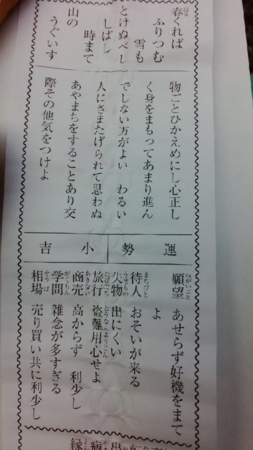 春くれば
はる
ふりつむ
雪も
とけぬべし
しばし
時まて
山の
うぐいす
物ごとひかえめにし心正し
く身をまもつてあまり進ん
でしない方がよい　わるい
人にさまたげられて思わぬ
あやまちをすることあり交
際その他気をつけよ
運勢
小吉
願望　あせらず好機をまて
よ
待人　おそいが来る
失物　出にくい
旅行　盗難用心せよ
商売　高からず　利少し
学問　雑念が多すぎる
相場　売り買い共に利少し